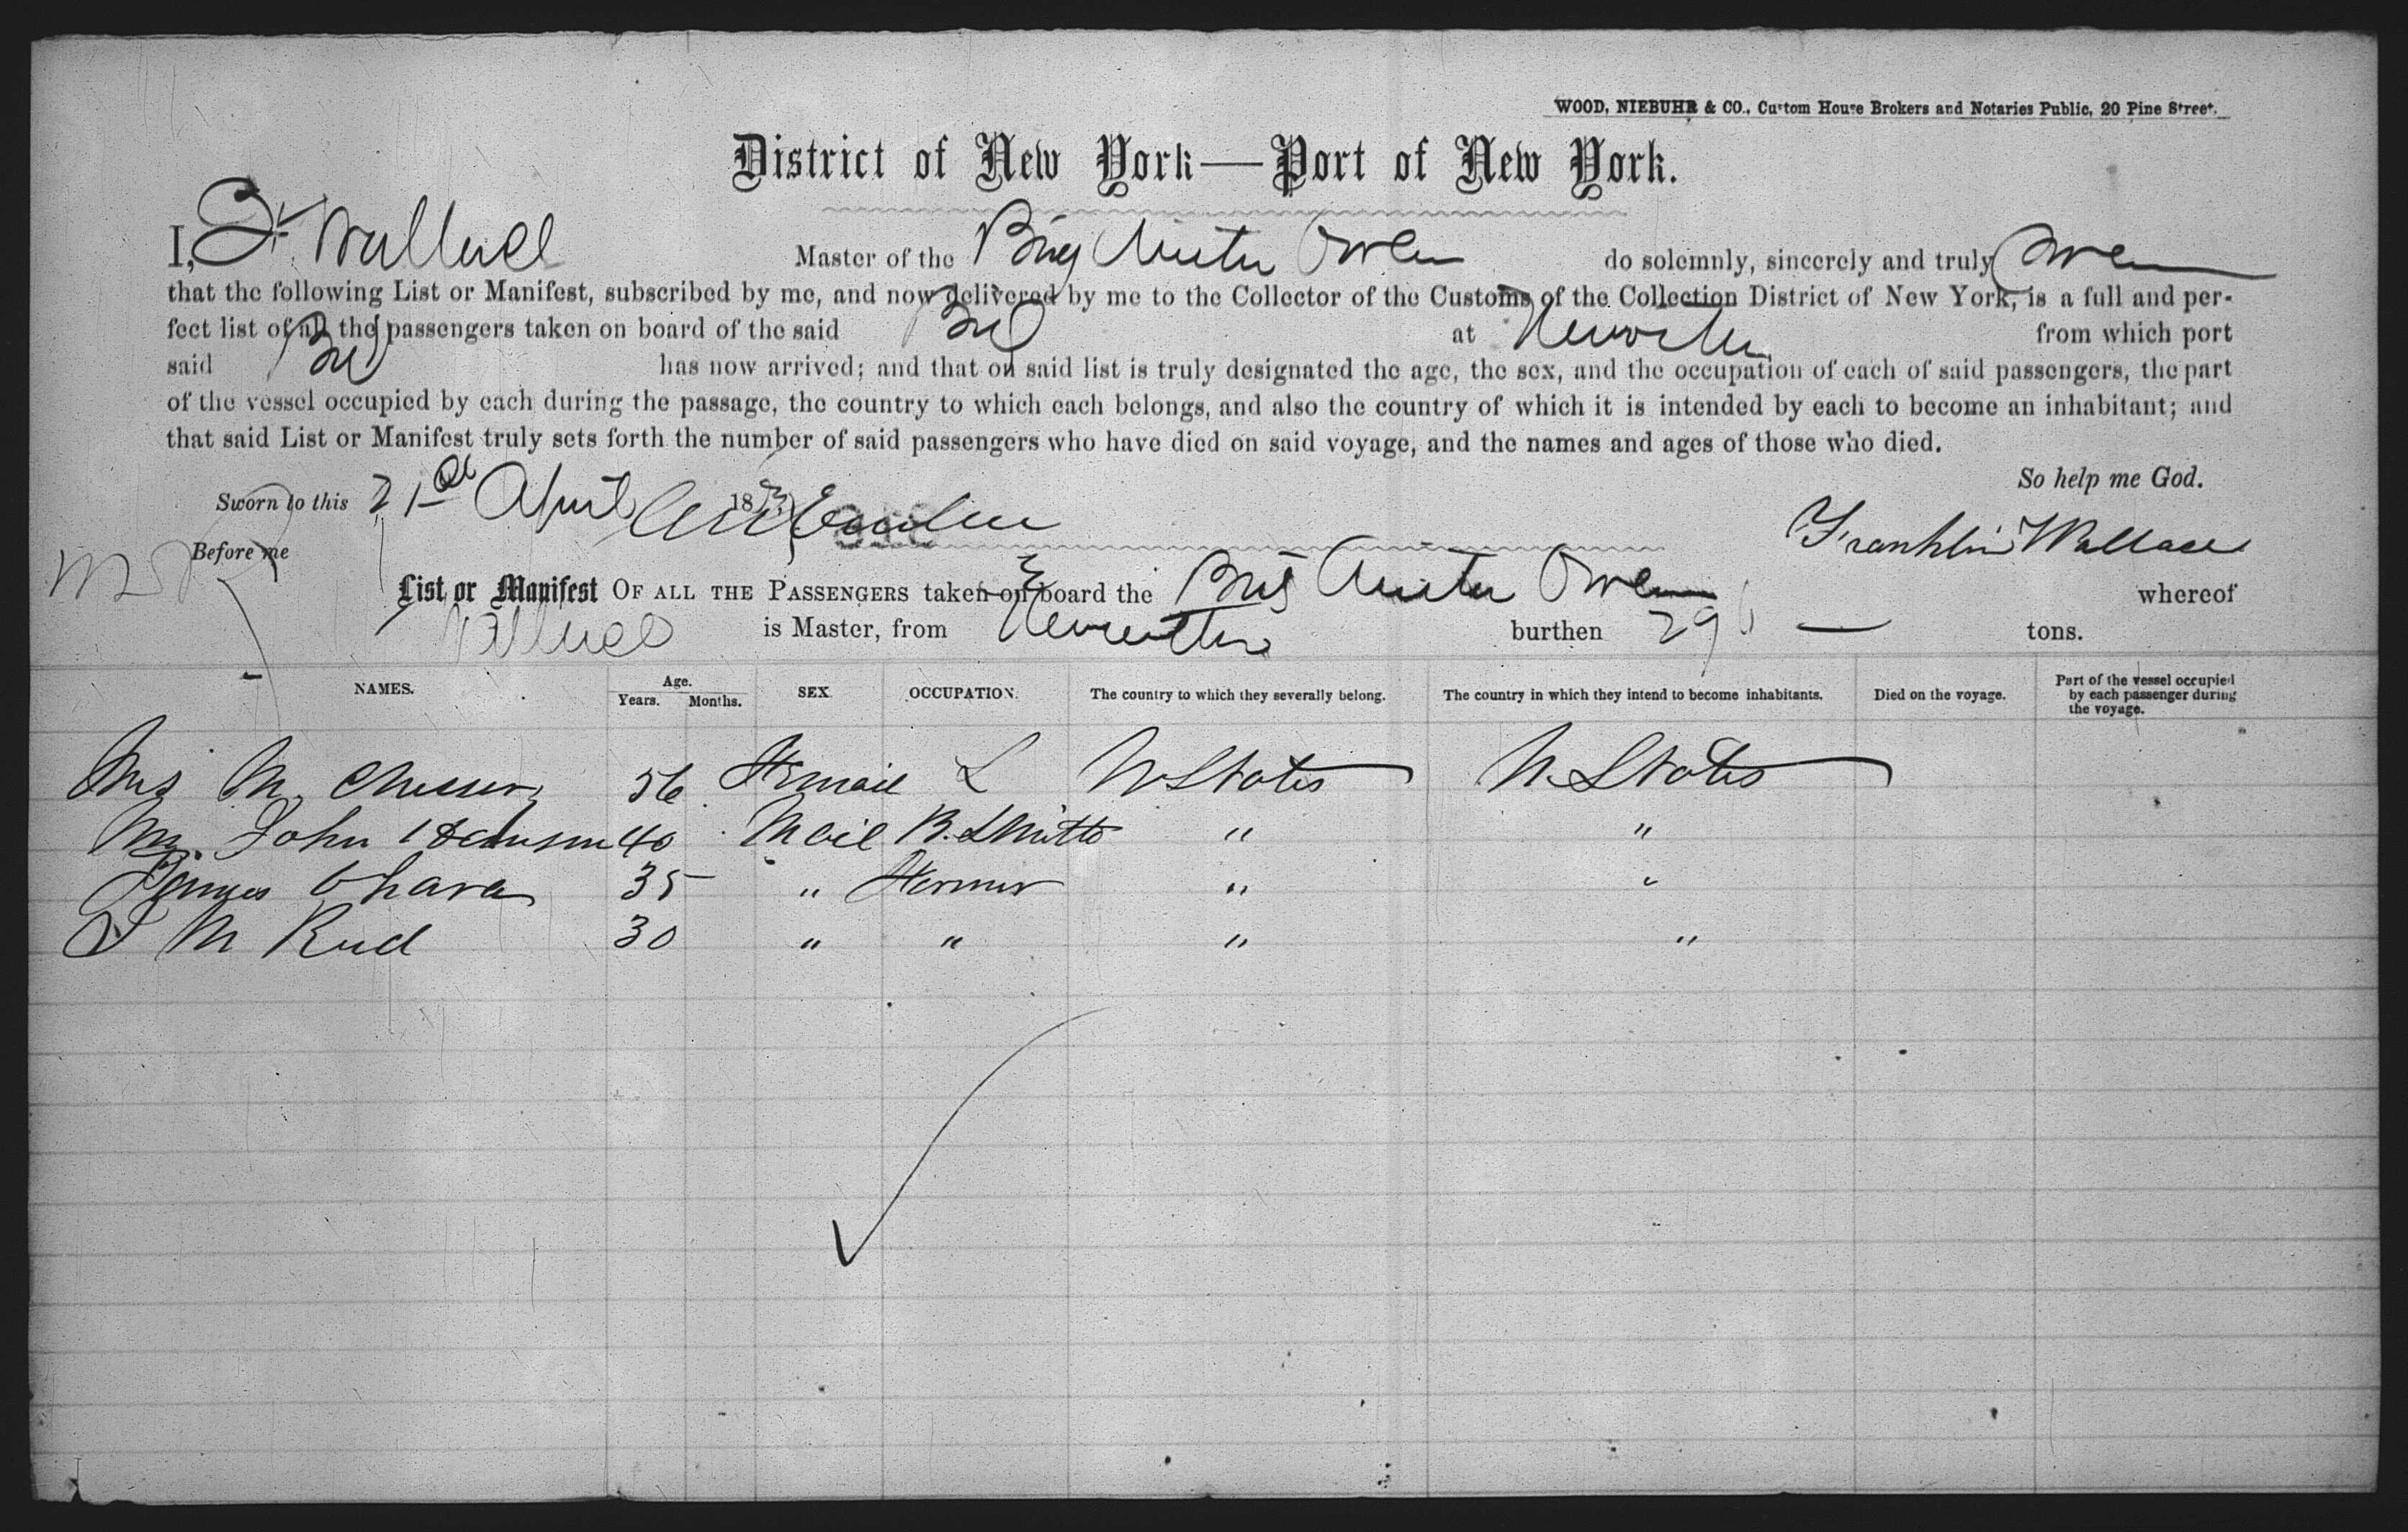 WOOD, NIEBUHR & CO., Custom House Brokers and Notaries Public, 20 Pine Street.
District of New York—Port of New York.
I, F Wallace Master of the Brig Owen do solemnly, sincerely and truly swear
that the following List or Manifest, subscribed by me, and now delivered by me to the Collector of the Customs of the Collection District of New York, is a full and per-
fect list of all the passengers taken on board of the said Brig at from which port
said Brig has now arrived; and that on said list is truly designated the age, the sex, and the occupation of each of said passengers, the part
of the vessel occupied by each during the passage, the country to which each belongs, and also the country of which it is intended by each to become an inhabitant; and
that said List or Manifest truly sets forth the number of said passengers who have died on said voyage, and the names and ages of those who died.
So help me God.
Sworn to this 21st April 187
Franklin Wallace
Before me
List or Manifest OF ALL THE PASSENGERS taken on board the Brig Owen whereof
Wallace is Master, from burthen 296 — tons.
NAMES. Age. Years. Months. SEX. OCCUPATION. The country to which they severally belong. The country in which they intend to become inhabitants. Died on the voyage. Part of the vessel occupied by each passenger during the voyage.
Mrs M. 56 Femail L U States U. States
Mr. John 40 Mail B. Smith " "
James Ohara 35 " Farmer " "
J M 30 " " " "